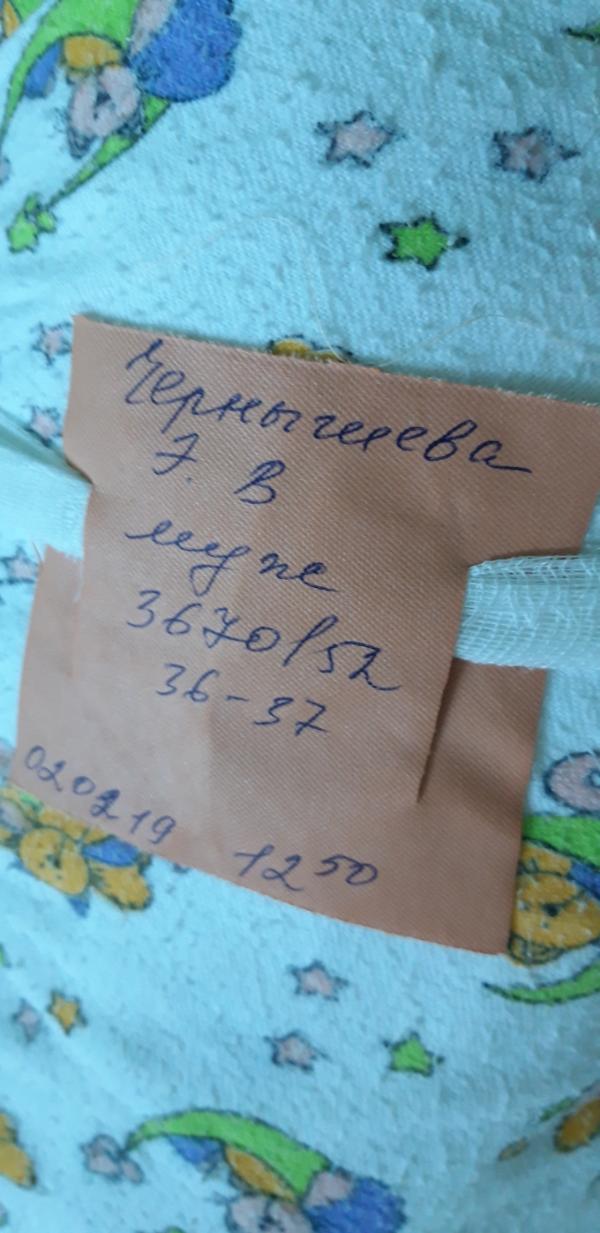 Чернышева
Э. В
муж
3670/52
36-37
020219 12 50